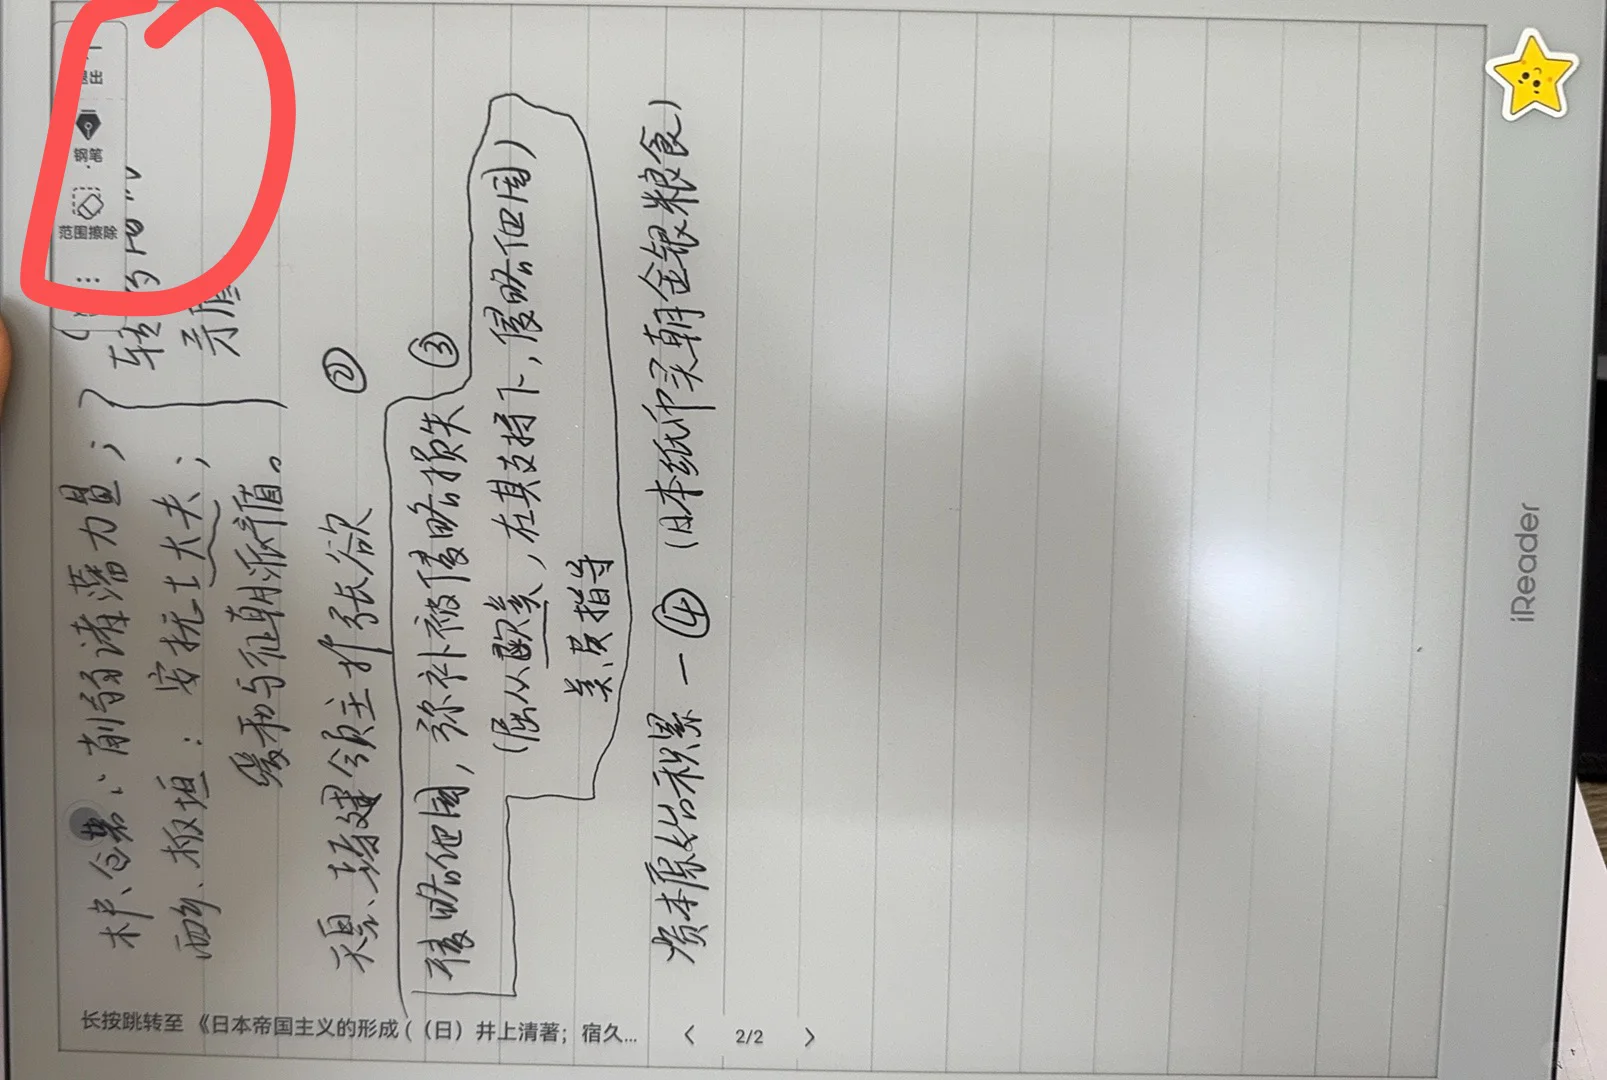 退出
钢笔
范围擦除
木户、仓券：削弱诸藩力量；
转
西乡、板垣：安抚士大夫；
矛盾
缓和与征朝派矛盾。
天皇、封建领主扩张欲 ②
侵略他国，弥补被侵略损失 ③
（屈从欧美，在其支持下，侵略他国）
美员指导
资本原始积累 — ④ （日本纸币买朝金银粮食）
长按跳转至 《日本帝国主义的形成（（日）井上清著；宿久...
< 2/2 >
iReader